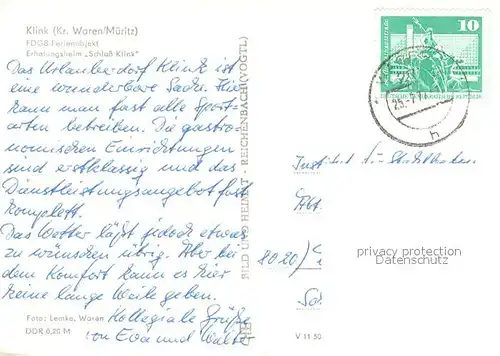 Klink (Kr. Waren/Müritz)
FDGB-Ferienobjekt
Erholungsheim „Schloß Klink"
Das Urlauberdorf Klink ist
eine wunderbare Sache. Hier
kann man fast alle Sport-
arten betreiben. Die gastro-
nomischen Einrichtungen
sind erstklassig und das
Dienstleistungsangebot fast
komplett.
Das Wetter läßt jedoch etwas
zu wünschen übrig. Aber bei
dem Komfort kann es hier
keine lange Weile geben.
Kollegiale Grüße
von Eva und
Foto: Lemke, Waren
DDR 0,20 M
BILD UND HEIMAT · REICHENBACH (VOGTL)
10
h
Institut
8020
V 11 50
privacy protection
Datenschutz